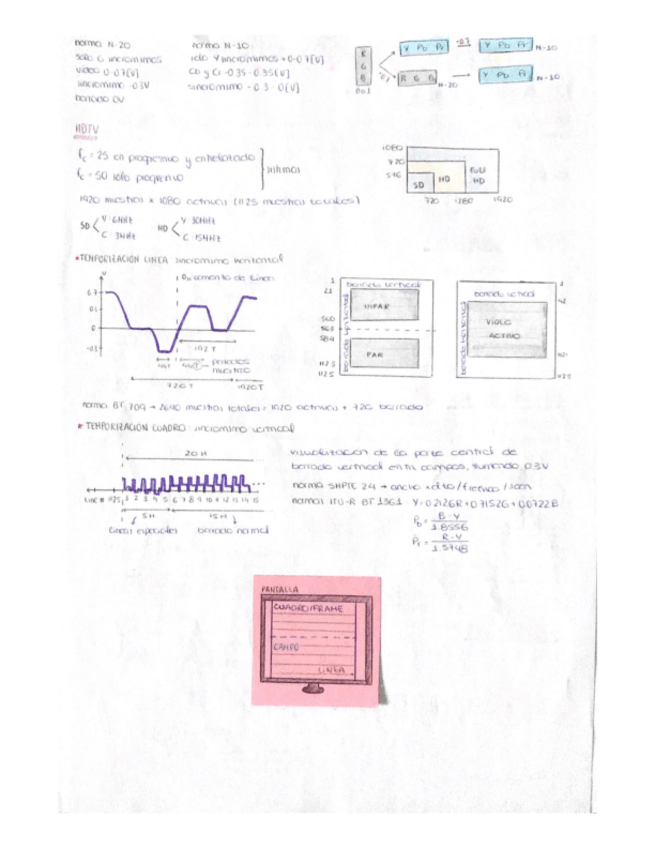 norma N-20
solo G sincronismos
video 0-0.7[V]
sincronismo -0.3V
borrado 0V
norma N-10:
solo Y sincronismos +0-0.7[V]
Cb y Cr -0.35-0.35[V]
sincronismo -0.3-0[V]
R
G
B
Y Pb Pr
-0.3
Y Pb Pr
N-10
R G B
N-20
Y Pb Pr
N-10
HDTV
fc = 25 en progresivo y entrelazado
fc = 50 solo progresivo
1920 muestras x 1080 activas (1125 muestras totales)
SD
V: 6MHz
C: 3MHz
HD
V: 30MHz
C: 15MHz
1080
720
576
SD
HD
FULL
HD
720
1280
1920
• TEMPORIZACIÓN LINEA: sincronismo horizontal
V
0.7
0
-0.3
192T
periodos
muestreo
720T
1920T
1
21
560
563
584
1123
1125
borrado vertical
borrado horizontal
IMPAR
PAR
1
42
1121
1125
borrado vertical
borrado horizontal
VIDEO
ACTIVO
norma BT 709 → 2640 muestras totales = 1920 activas + 720 borrado
• TEMPORIZACIÓN CUADRO: sincronismo vertical
20H
LINE # 1125 1 2 3 4 5 6 7 8 9 10 11 12 13 14 15
5H
15H
lineas especiales
borrado normal
visualización de la parte central de
borrado vertical entre campos, sumando 0.3V
norma SMPTE 24 → ancho x alto/frecuencia/scan
norma ITU-R BT 1361
Y = 0.2126R + 0.7152G + 0.0722B
Pb = B-Y / 1.8556
Pr = R-Y / 1.5748
PANTALLA
CUADRO/FRAME
CAMPO
LINEA